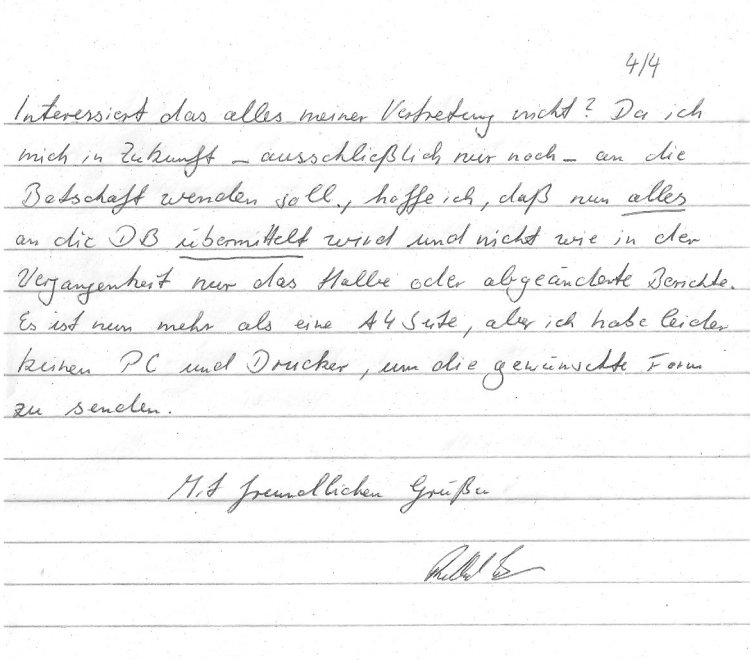 4/4
Interessiert das alles meiner Vertretung nicht? Da ich
mich in Zukunft – ausschließlich nur noch – an die
Botschaft wenden soll, hoffe ich, daß nun alles
an die DB übermittelt wird und nicht wie in der
Vergangenheit nur das Halbe oder abgeänderte Berichte.
Es ist nun mehr als eine A4 Seite, aber ich habe leider
keinen PC und Drucker, um die gewünschte Form
zu senden.
Mit freundlichen Grüßen